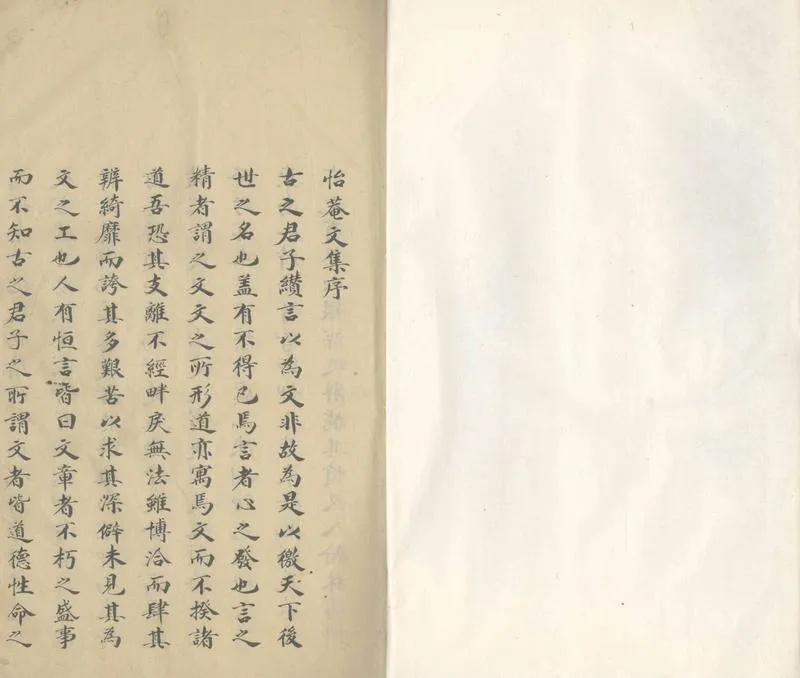 怡菴文集序
古之君子纉言以為文非故為是以徼天下後
世之名也盖有不得已焉言者心之發也言之
精者謂之文文之所形道亦寓焉文而不揆諸
道吾恐其支離不經畔戾無法雖博洽而肆其
辨綺靡而誇其多艱苦以求其深僻未見其為
文之工也人有恒言皆曰文章者不朽之盛事
而不知古之君子之所謂文者皆道德性命之